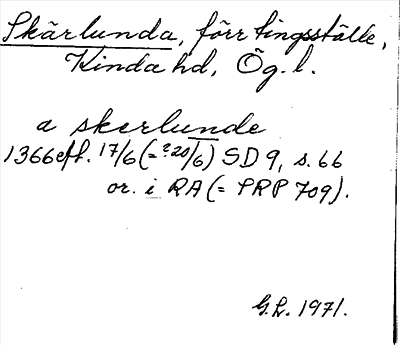 Skärlunda, förr tingsställe,
Kinda hd, Ög. l.
a skerlunde
1366 eft. 17/6 (= ? 20/6) SD 9, s. 66
or. i RA (= PRP 709).
G.L. 1971.